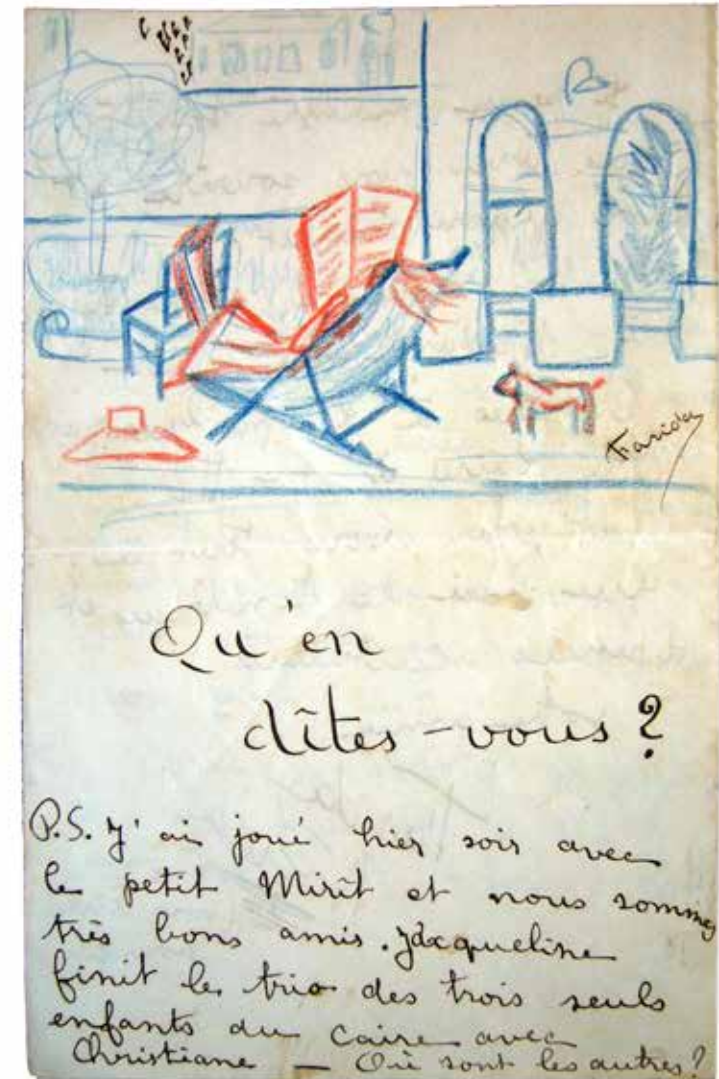 Farida
Qu'en
dîtes-vous ?
P.S. J'ai joué hier soir avec
le petit Mirit et nous sommes
très bons amis. Jacqueline
finit le trio des trois seuls
enfants du Caire avec
Christiane — Où sont les autres ?